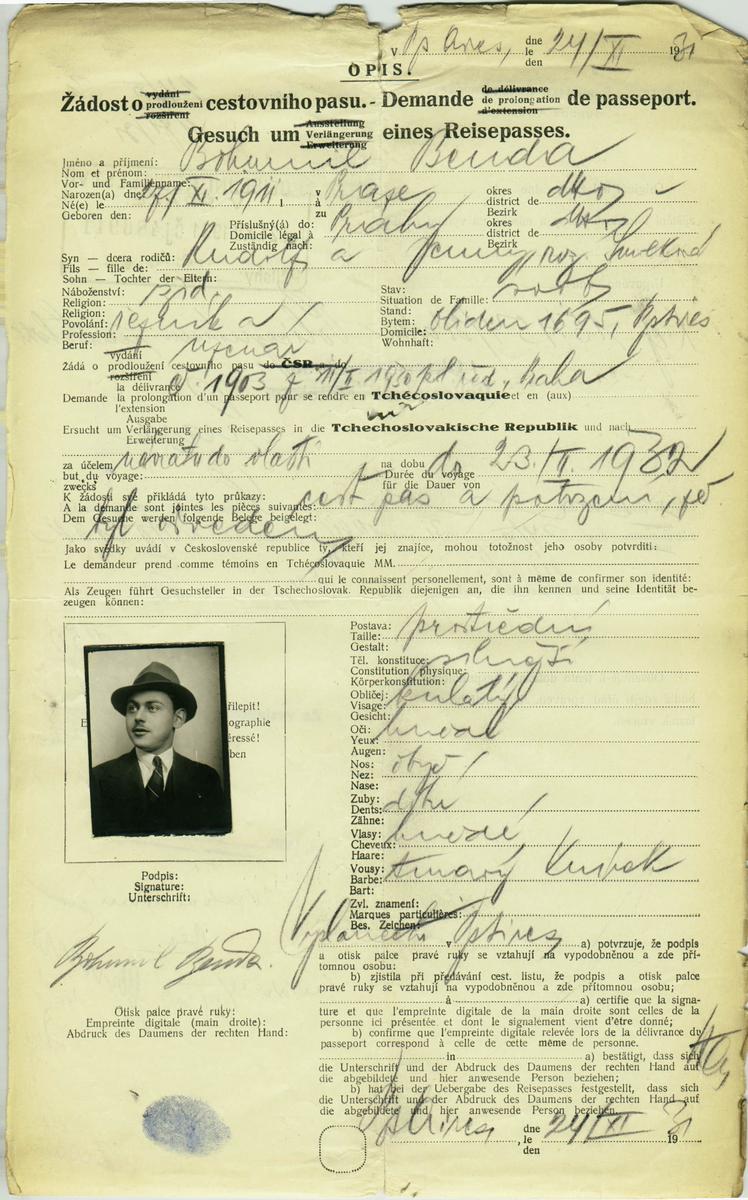 v Bs Aires, dne le den 24/XI 1931
OPIS.
Žádost o vydání prodloužení rozšíření cestovního pasu. - Demande de délivrance de prolongation d'extension de passeport.
Gesuch um Ausstellung Verlängerung Erweiterung eines Reisepasses.
Jméno a příjmení: Bohumil Benda
Nom et prénom:
Vor- und Familienname:
Narozen(a) dne: XI. 1911, v Praze okres
Né(e) le à district de
Geboren den: zu Bezirk
Příslušný(á) do: Prahy okres
Domicile légal à district de
Zuständig nach: Bezirk
Syn — dcera rodičů: Rudolf a roz.
Fils — fille de:
Sohn — Tochter der Eltern:
Náboženství: Stav:
Religion: Situation de Famille:
Religion: Stand:
Povolání: řezník a Bytem: Oliden 1695, Bs Aires
Profession: Domicile:
Beruf: uzenář Wohnhaft:
vydání
Žádá o prodloužení cestovního pasu do ČSR. a do
rozšíření
la délivrance č. 1903 z 11/ 1930 Praha
Demande la prolongation d'un passeport pour se rendre en Tchécoslovaquie et en (aux)
l'extension
Ausgabe
Ersucht um Verlängerung eines Reisepasses in die Tschechoslovakische Republik und nach
Erweiterung
za účelem návratu do vlasti na dobu do 23./II 1932
but du voyage: Durée du voyage
zwecks für die Dauer von
K žádosti se přikládá tyto průkazy: cest. pas a potvrzení, že
A la demande sont jointes les pièces suivantes:
Dem Gesuche werden folgende Belege beigelegt:
byl
Jako svědky uvádí v Československé republice ty, kteří jej znajíce, mohou totožnost jeho osoby potvrditi:
Le demandeur prend comme témoins en Tchécoslovaquie MM.
qui le connaissent personellement, sont à même de confirmer son identité:
Als Zeugen führt Gesuchsteller in der Tschechoslovak. Republik diejenigen an, die ihn kennen und seine Identität bezeugen können:
řilepit!
ographie
éressé!
ben
Podpis:
Signature:
Unterschrift:
Bohumil Benda.
Otisk palce pravé ruky:
Empreinte digitale (main droite):
Abdruck des Daumens der rechten Hand:
Postava: prostřední
Taille:
Gestalt:
Těl. konstituce: silnější
Constitution physique:
Körperkonstitution:
Obličej: kulatý
Visage:
Gesicht:
Oči: hnědé
Yeux:
Augen:
Nos: obyč.
Nez:
Nase:
Zuby:
Dents:
Zähne:
Vlasy: hnědé
Cheveux:
Haare:
Vousy: tmavý knírek
Barbe:
Bart:
Zvl. znamení:
Marques particulières:
Bes. Zeichen:
Vyslanectví v Bs Aires a) potvrzuje, že podpis
a otisk palce pravé ruky se vztahují na vypodobněnou a zde přítomnou osobu:
b) zjistila při předávání cest. listu, že podpis a otisk palce
pravé ruky se vztahují na vypodobněnou a zde přítomnou osobu;
à a) certifie que la signature et que l'empreinte digitale de la main droite sont celles de la
personne ici présentée et dont le signalement vient d'être donné;
b) confirme que l'empreinte digitale relevée lors de la délivrance du
passeport correspond à celle de cette même de personne.
in a) bestätigt, dass sich
die Unterschrift und der Abdruck des Daumens der rechten Hand auf
die abgebildete und hier anwesende Person beziehen;
b) hat bei der Uebergabe des Reisepasses festgestellt, dass sich
die Unterschrift und der Abdruck des Daumens der rechten Hand auf
die abgebildete und hier anwesende Person beziehen.
Bs Aires, dne le den 24/XI 1931